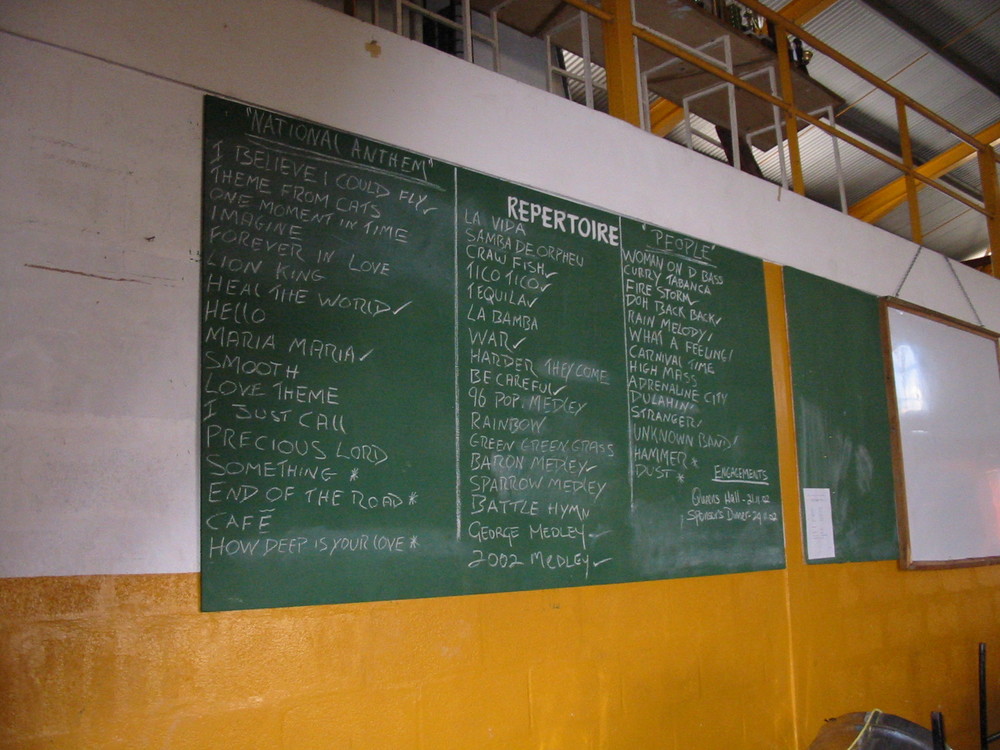 "NATIONAL ANTHEM"
I BELIEVE I COULD FLY ✓
THEME FROM CATS
ONE MOMENT IN TIME
IMAGINE
FOREVER IN LOVE
LION KING
HEAL THE WORLD ✓
HELLO
MARIA MARIA ✓
SMOOTH
LOVE THEME
I JUST CALL
PRECIOUS LORD
SOMETHING *
END OF THE ROAD *
CAFÉ
HOW DEEP IS YOUR LOVE *
REPERTOIRE
LA VIDA
SAMBA DE ORPHEU
CRAW FISH ✓
TICO TICO ✓
TEQUILA ✓
LA BAMBA
WAR ✓
HARDER THEY COME
BE CAREFUL ✓
96 POP. MEDLEY
RAINBOW
GREEN GREEN GRASS
BARON MEDLEY ✓
SPARROW MEDLEY
BATTLE HYMN
GEORGE MEDLEY ✓
2002 MEDLEY ✓
"PEOPLE"
WOMAN ON D BASS
CURRY TABANCA
FIRE STORM
DOH BACK BACK ✓
RAIN MELODY ✓
WHAT A FEELING!
CARNIVAL TIME
HIGH MASS
ADRENALINE CITY
DULAHIN
STRANGER ✓
UNKNOWN BAND ✓
HAMMER *
DUST *
ENGAGEMENTS
Queens Hall - 21.11.02
Sponsor's Dinner - 29.11.02